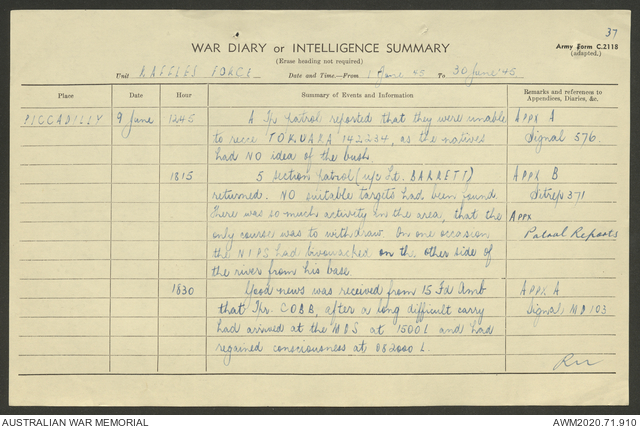 37
WAR DIARY or INTELLIGENCE SUMMARY
Army Form C.2118
(adapted.)
(Erase heading not required)
Unit RAFFLES FORCE Date and Time.—From 1 June 45 To 30 June '45
Place Date Hour Summary of Events and Information Remarks and references to Appendices, Diaries, &c.
PICCADILLY 9 June 1245 A Tp patrol reported that they were unable APPX A
to recce TOKUARA 142234, as the natives Signal 576.
had NO idea of the bush.
1815 5 section patrol (u/c Lt. BARRETT) APPX B
returned. NO suitable targets had been found. Sitrep 371
There was so much activity in the area, that the APPX
only course was to withdraw. On one occasion Patrol Reports
the NIPS had bivouacked on the other side of
the river from his base.
1830 Good news was received from 15 Fd Amb APPX A
that Tpr. COBB, after a long difficult carry Signal MD 103
had arrived at the MDS at 1500 L and had
regained consciousness at 082000 L.
AUSTRALIAN WAR MEMORIAL AWM2020.71.910